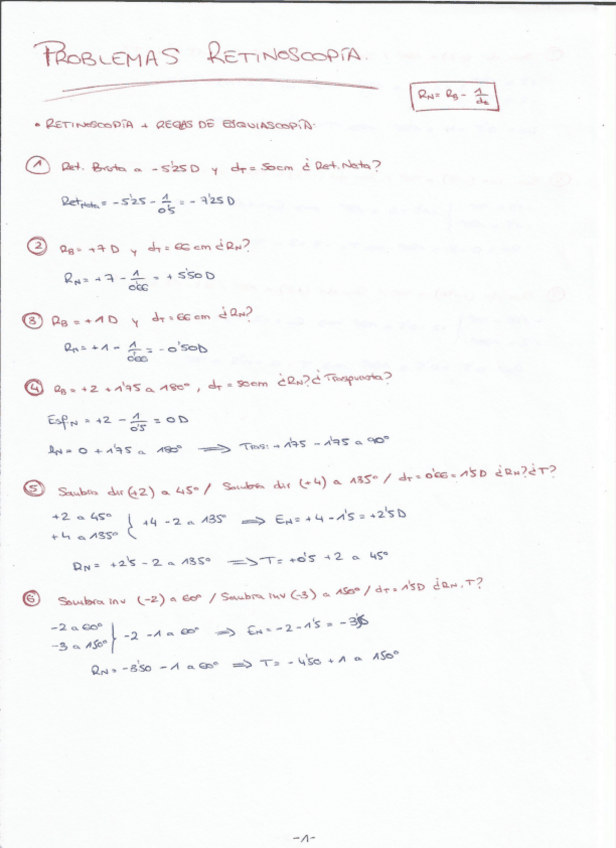 PROBLEMAS RETINOSCOPÍA.
RN = RB - 1/dt
• RETINOSCOPÍA + REGAS DE ESQUIASCOPÍA:
① Ret. Bruta a -5'25D y dT = 50cm ¿Ret. Neta?
Ret Neta = -5'25 - 1/0'5 = -7'25D
② RB = +7D y dT = 66cm ¿RN?
RN = +7 - 1/0'66 = +5'50D
③ RB = +1D y dT = 66cm ¿RN?
RN = +1 - 1/0'66 = -0'50D
④ RB = +2 +1'75 a 180°, dT = 50cm ¿RN? ¿Transpuesta?
Esf.N = +2 - 1/0'5 = 0D
RN = 0 +1'75 a 180° ⟹ Tras: +1'75 -1'75 a 90°
⑤ Sombra dir (+2) a 45° / Sombra dir (+4) a 135° / dT = 0'66 = 1'5D ¿RN? ¿T?
+2 a 45°
+4 a 135° } +4 -2 a 135° ⟹ EN = +4 -1'5 = +2'5D
RN = +2'5 -2 a 135° ⟹ T = +0'5 +2 a 45°
⑥ Sombra inv (-2) a 60° / Sombra inv (-3) a 150° / dT = 1'5D ¿RN. T?
-2 a 60°
-3 a 150° } -2 -1 a 60° ⟹ EN = -2 -1'5 = -3'5
RN = -3'50 -1 a 60° ⟹ T = -4'50 +1 a 150°
-1-